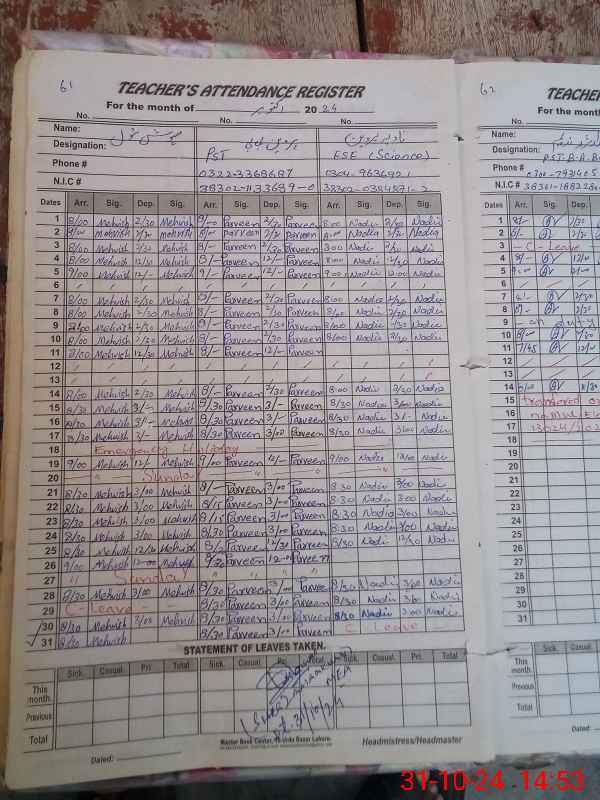 61
TEACHER'S ATTENDANCE REGISTER
For the month of اکتوبر 2024
No. No. No.
Name: مہوش بتول پروین بی بی نادیہ پروین
Designation: PST ESE (Science)
Phone # 0322-3368687 0304-9636921
N.I.C # 38302-1133699-0 38302-0384871-2
Dates Arr. Sig. Dep. Sig. Arr. Sig. Dep. Sig. Arr. Sig. Dep. Sig.
1 8/00 Mehwish 2/30 Mehwish 8/00 Parveen 2/30 Parveen 8:00 Nadia 2/30 Nadia
2 8/00 Mehwish 2/30 Mehwish 8/00 Parveen 2/30 Parveen 8:00 Nadia 2/30 Nadia
3 8/00 Mehwish 2/30 Mehwish 8/- Parveen 2/30 Parveen 8:00 Nadia 2/30 Nadia
4 8/00 Mehwish 12/30 Mehwish 8/- Parveen 12/- Parveen 8:00 Nadia 12/30 Nadia
5 9/00 Mehwish 12/- Mehwish 9/- Parveen 12/- Parveen 9:00 Nadia 12:00 Nadia
6
7 8/00 Mehwish 2/30 Mehwish 8/- Parveen 2/30 Parveen 8:00 Nadia 2/30 Nadia
8 8/00 Mehwish 2/30 Mehwish 8/- Parveen 2/30 Parveen 8/00 Nadia 2/30 Nadia
9 8/00 Mehwish 2/30 Mehwish 8/- Parveen 2/30 Parveen 8/00 Nadia 2/30 Nadia
10 8/00 Mehwish 2/30 Mehwish 8/- Parveen 2/30 Parveen 8/00 Nadia 2/30 Nadia
11 8/00 Mehwish 12/30 Mehwish 8/- Parveen 12/- Parveen
12
13
14 8/00 Mehwish 2/30 Mehwish 8/- Parveen 2/30 Parveen 8:00 Nadia 2/30 Nadia
15 8/30 Mehwish 3/- Mehwish 8/30 Parveen 3/- Parveen 8/30 Nadia 3/00 Nadia
16 8/30 Mehwish 3/- Mehwish 8/30 Parveen 3/- Parveen 8/30 Nadia 3/- Nadia
17 8/30 Mehwish 3/- Mehwish 8/30 Parveen 3/00 Parveen 8/30 Nadia 3/00 Nadia
18 Emergency Holiday
19 9/00 Mehwish 12/- Mehwish 9/00 Parveen 12/- Parveen 9/00 Nadia 12/00 Nadia
20 Sunday
21 8/30 Mehwish 3/00 Mehwish 8/- Parveen 3/00 Parveen 8:30 Nadia 3/00 Nadia
22 8/30 Mehwish 3/00 Mehwish 8/15 Parveen 3/00 Parveen 8:30 Nadia 3:00 Nadia
23 8/30 Mehwish 3/00 Mehwish 8/15 Parveen 3/00 Parveen 8:30 Nadia 3/00 Nadia
24 8/30 Mehwish 3/00 Mehwish 8/30 Parveen 3/00 Parveen 8:30 Nadia 3/00 Nadia
25 8/30 Mehwish 12/30 Mehwish Parveen Parveen 8/30 Nadia 12/30 Nadia
26 9/00 Mehwish 12:00 Mehwish Parveen 12:00 Parveen
27 Sunday
28 8/30 Mehwish 3/00 Mehwish 8/30 Parveen 3/00 Parveen 8/30 Nadia 3/00 Nadia
29 C-Leave - - 8/30 Parveen 3/00 Parveen 8/30 Nadia 3/00 Nadia
30 8/30 Mehwish 3/00 Mehwish 8/30 Parveen 3/00 Parveen 8/30 Nadia 3:00 Nadia
31 8/30 Mehwish 8/30 Parveen 3/00 Parveen C Leave -
STATEMENT OF LEAVES TAKEN.
Sick. Casual. Pri. Total Sick. Casual. Pri. Total Sick. Casual. Pri. Total
This month.
Previous
Total
MEA
Dt. 31/10/24
Master Book Center, Urdu Bazar Lahore.
Dated: Headmistress/Headmaster
62
TEACHER
For the month
No.
Name:
Designation: P.S.T. B.A. B.
Phone #
N.I.C #
Dates Arr. Sig. Dep.
1
2
3 - C - Leave
4
5
6
7
8
9 - on duty
10
11
12
13
14
15 transferred
16
17
18
19
20
21
22
23
24
25
26
27
28
29
30
31
Sick. Casual.
This month.
Previous
Total
Dated:
31-10-24 14:53